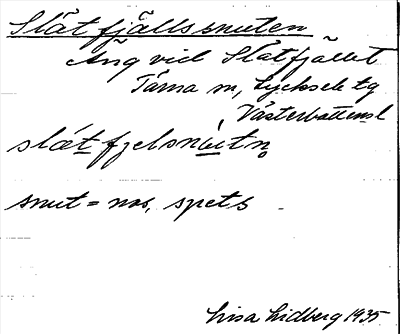 Slätfjällssnuten
Äng vid Slätfjället
Tärna sn, Lycksele tg
Västerbottens l
slätfjelsnutn
snut = nos, spets
Lisa Lidberg 1935